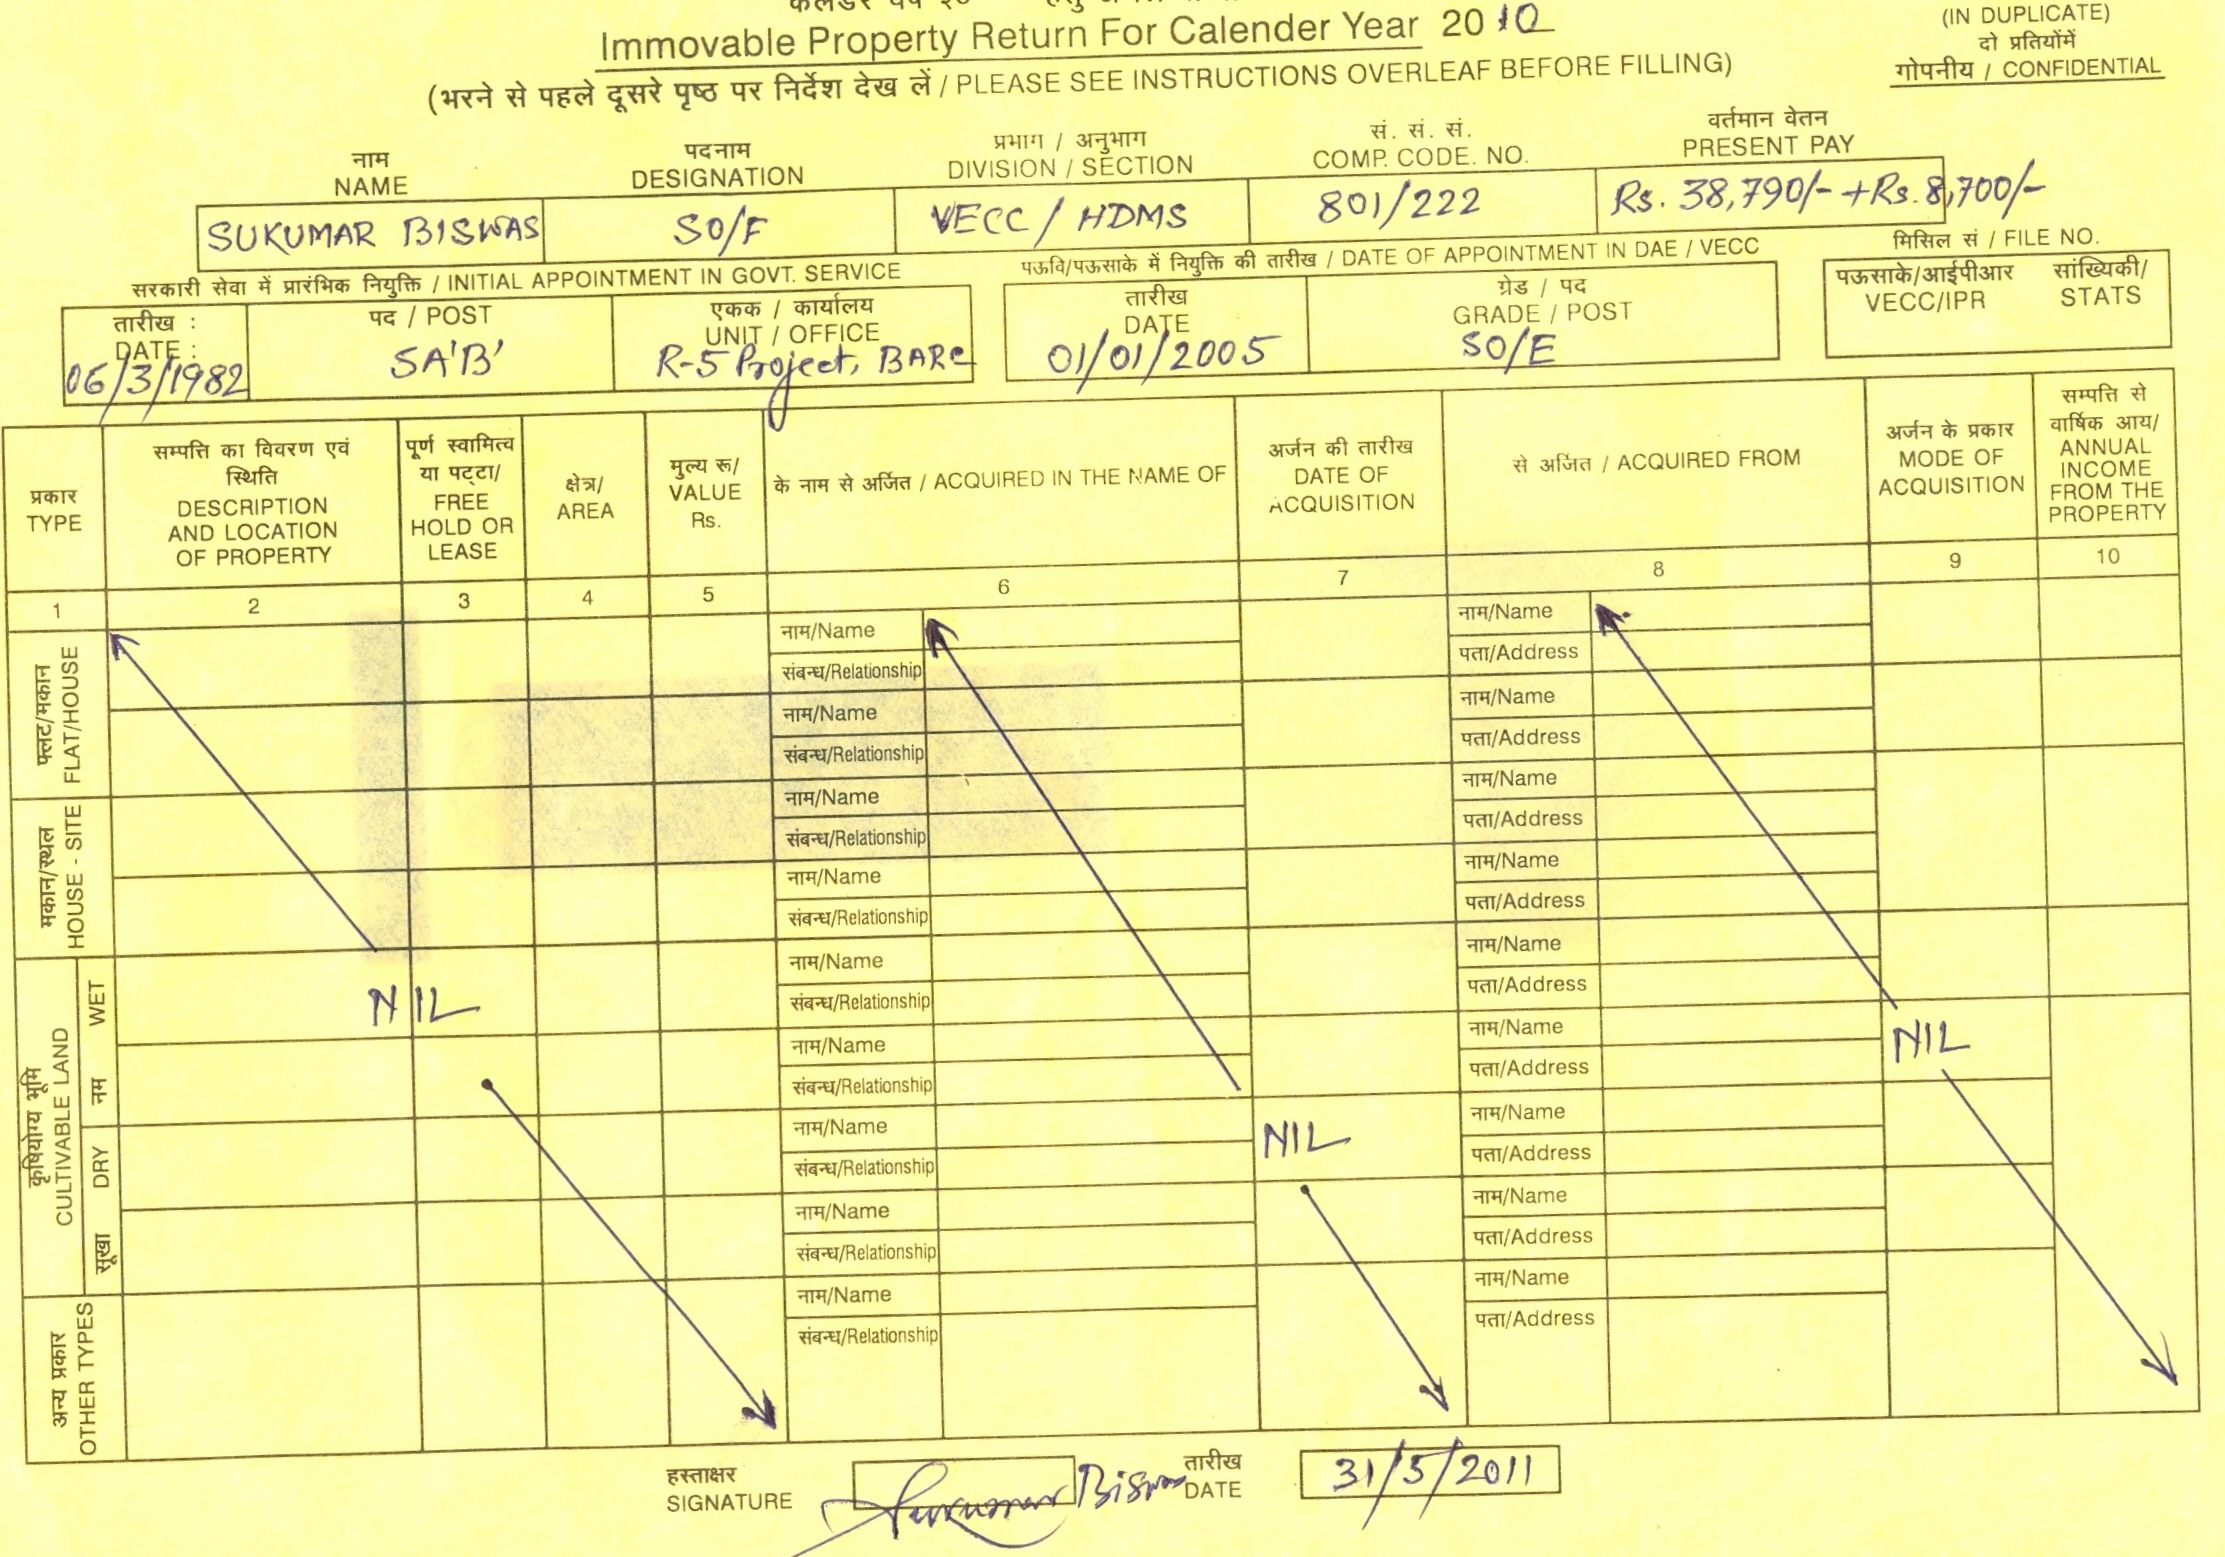 Immovable Property Return For Calender Year 2010
(IN DUPLICATE)
दो प्रतियोंमें
गोपनीय / CONFIDENTIAL
(भरने से पहले दूसरे पृष्ठ पर निर्देश देख लें / PLEASE SEE INSTRUCTIONS OVERLEAF BEFORE FILLING)
नाम
NAME
SUKUMAR BISWAS
पदनाम
DESIGNATION
SO/F
प्रभाग / अनुभाग
DIVISION / SECTION
VECC / HDMS
सं. सं. सं.
COMP. CODE. NO.
801/222
वर्तमान वेतन
PRESENT PAY
Rs. 38,790/- + Rs. 8,700/-
सरकारी सेवा में प्रारंभिक नियुक्ति / INITIAL APPOINTMENT IN GOVT. SERVICE
तारीख :
DATE :
06/3/1982
पद / POST
SA'B'
एकक / कार्यालय
UNIT / OFFICE
R-5 Project, BARC
पऊवि/पऊसाके में नियुक्ति की तारीख / DATE OF APPOINTMENT IN DAE / VECC
तारीख
DATE
01/01/2005
ग्रेड / पद
GRADE / POST
SO/E
मिसिल सं / FILE NO.
पऊसाके/आईपीआर सांख्यिकी/
VECC/IPR STATS
प्रकार
TYPE
सम्पत्ति का विवरण एवं
स्थिति
DESCRIPTION
AND LOCATION
OF PROPERTY
पूर्ण स्वामित्व
या पट्टा/
FREE
HOLD OR
LEASE
क्षेत्र/
AREA
मुल्य रू/
VALUE
Rs.
के नाम से अर्जित / ACQUIRED IN THE NAME OF
अर्जन की तारीख
DATE OF
ACQUISITION
से अर्जित / ACQUIRED FROM
अर्जन के प्रकार
MODE OF
ACQUISITION
सम्पत्ति से
वार्षिक आय/
ANNUAL
INCOME
FROM THE
PROPERTY
1 2 3 4 5 6 7 8 9 10
फ्लट/मकान
FLAT/HOUSE
नाम/Name
संबन्ध/Relationship
नाम/Name
संबन्ध/Relationship
नाम/Name
पता/Address
नाम/Name
पता/Address
मकान/स्थल
HOUSE - SITE
नाम/Name
संबन्ध/Relationship
नाम/Name
संबन्ध/Relationship
नाम/Name
पता/Address
नाम/Name
पता/Address
कृषियोग्य भूमि
CULTIVABLE LAND
नम WET
NIL
नाम/Name
संबन्ध/Relationship
नाम/Name
संबन्ध/Relationship
नाम/Name
पता/Address
नाम/Name
पता/Address
NIL
सूखा DRY
नाम/Name
संबन्ध/Relationship
नाम/Name
संबन्ध/Relationship
NIL
नाम/Name
पता/Address
नाम/Name
पता/Address
अन्य प्रकार
OTHER TYPES
नाम/Name
संबन्ध/Relationship
नाम/Name
पता/Address
हस्ताक्षर
SIGNATURE
Sukumar Biswas
तारीख
DATE
31/5/2011